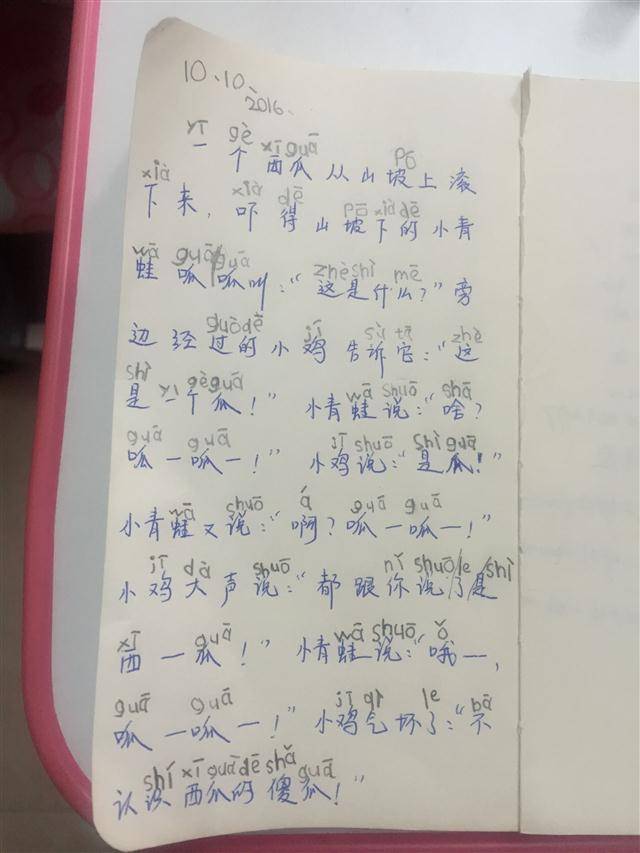 10、10、
2016、
yī gè xī guā pō
一个西瓜从山坡上滚
xià xià dē pō xià dē
下来，吓得山坡下的小青
wā guā guā zhè shì mē
蛙呱呱叫：“这是什么？”旁
guò dē jī sù tā zhè
边经过的小鸡告诉它：“这
shì yī gè guā wā shuō shā
是一个瓜！”小青蛙说：“啥？
guā guā jī shuō shì guā
呱—呱—！”小鸡说：“是瓜！”
wā shuō á guā guā
小青蛙又说：“啊？呱—呱—！”
jī dà shuō nǐ shuō le shì
小鸡大声说：“都跟你说了是
xī guā wā shuō ǒ
西—瓜！”小青蛙说：“哦—，
guā guā jī qì le bù
呱—呱—！”小鸡气坏了：“不
shí xī guā dē shǎ guā
认识西瓜的傻瓜！”